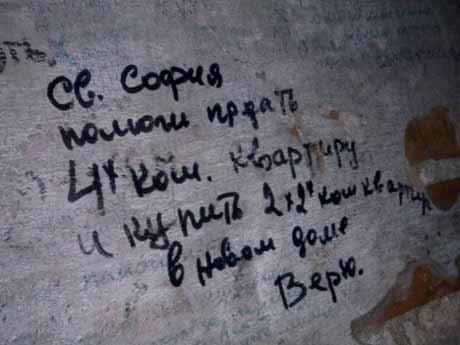 Св. София
помоги прдать
4х ком. квартиру
и купить 2х2х ком квартир
в новом доме
Верю.